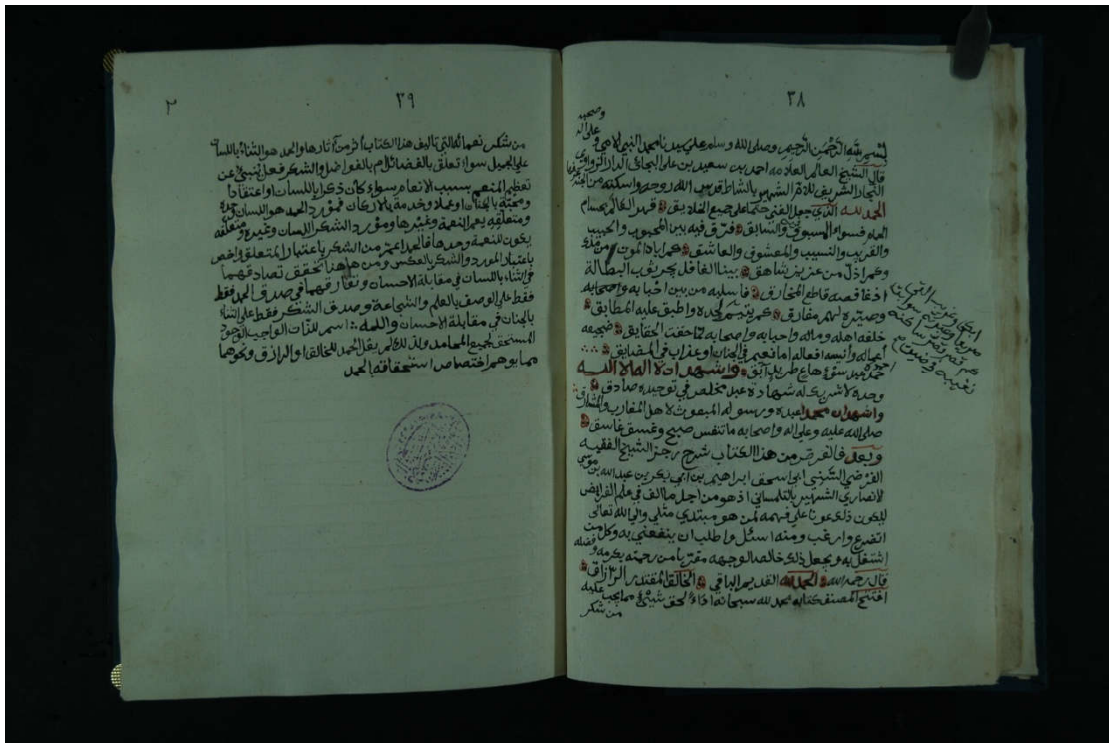 ٣٨
وصحبه
على اله
بسم الله الرحمن الرحيم وصلى الله وسلم على سيدنا محمد النبي الامي و
قال الشيخ العالم العلامه احمد بن سعيد بن علي البجائي الدار الزواوي
النجار الشريف بلاد الشهير بالشاط قدس الله روحه واسكنه من الجنة
الحمد لله الذي جعل الفنى حتما على جميع الخلايق قهر العالم بحسام
العدم فسواء المسبوق والسابق فترق فيه بين المحبوب والحبيب
والقريب والنسيب والمعشوق والعاشق كم اباد الموت من
وكم اذل من عزيز شاهق بينا الغافل يجر ثوب البطالة
اذ فاقصه قاطع المخارق فاسلبه من بين احبابه واصحابه
وصيره لهم مفارق كم يتيم لحده واطبق عليه المطابق
خلفه اهله وماله واحبابه واصحابه لما حقت الحقايق ضجيعه
اعماله وأنيسه افعاله اما نعيم في الجنان او عذاب في المضايق
طريد آبق واشهد ان لا اله الا الله
وحده لا شريك له شهادة عبد مخلص في توحيده صادق
واشهد ان محمدا عبده ورسوله المبعوث لاهل المغارب والمشارق
صلى الله عليه وعلى اله واصحابه ما تنفس صبح وغسق غاسق
وبعد فالغرض من هذا الكتاب شرح رجز الشيخ الفقيه
الفرضي السني ابي اسحق ابراهيم بن ابي بكر بن عبد الله بن موسى
الانصاري الشهير بالتلمساني اذ هو من اجل ما الف في علم الفرائض
ليكون ذلك عونا على فهمه لمن هو مبتدي مثلي والى الله تعالى
اتضرع وارغب ومنه اسئل واطلب ان ينفعني به وكل من
اشتغل به ويجعل ذلك خالصا لوجهه مقربا من رحمته بكرمه و فضله
قال رحمه الله الحمد لله القديم الباقي الخالق المقتدر الرزاق
افتتح المصنف كتابه بحمد لله سبحانه اداء لحق شيئ مما يجب عليه
من شكر
٣٩
٢
من شكر نعمائه التي تاليف هذا الكتاب أثر من آثارها والحمد هو الثناء باللسان
على الجميل سواء تعلق بالفضائل ام بالفواضل والشكر فعل ينبئ عن
تعظيم المنعم بسبب الانعام سواء كان ذكرا باللسان او اعتقادا
ومحبة بالجنان او عملا وخدمة بالاركان فمورد الحمد هو اللسان وحده
ومتعلقه يعم النعمة وغيرها ومورد الشكر اللسان وغيره ومتعلقه
يكون للنعمة وحدها فالحمد اعم من الشكر باعتبار المتعلق واخص
باعتبار المورد والشكر بالعكس ومن هاهنا تحقق تصادقهما
في الثناء باللسان في مقابلة الاحسان وتفارقهما في صدق الحمد فقط
فقط على الوصف بالعلم والشجاعة وصدق الشكر فقط على الثناء
بالجنان في مقابلة الاحسان والله اسم للذات الواجب الوجود
المستحق لجميع المحامد ولذلك لم يقل الحمد للخالق او الرازق ونحوهما
مما يوهم اختصاص استحقاقه بالحمد